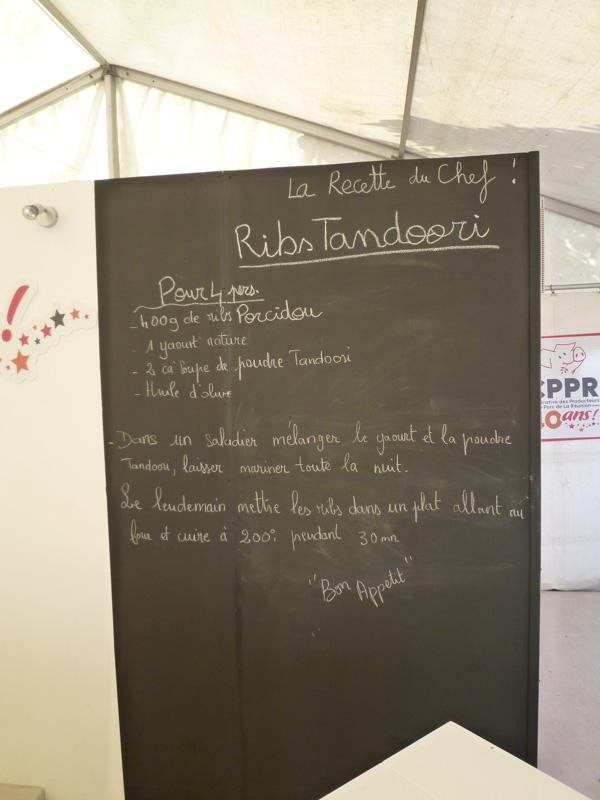 La Recette du Chef !
Ribs Tandoori
Pour 4 pers.
- 400g de ribs Porcidou
- 1 yaourt nature
- 2 cà Soupe de poudre Tandoori
- Huile d'olive
- Dans un saladier mélanger le yaourt et la poudre
Tandoori, laisser mariner toute la nuit.
Le lendemain mettre les ribs dans un plat allant au
four et cuire à 200° pendant 30mn
"Bon Appétit"
!
CPPR
des Producteurs
Porc de La Réunion
0 ans!